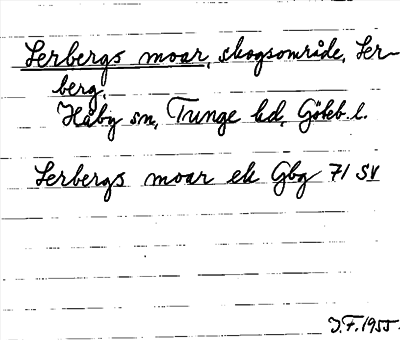 Lerbergs moar, skogsområde, Ler-
berg,
Håby sn, Tunge hd, Göteb. l.
Lerbergs moar ek Gbg 71 SV
J.F. 1955.